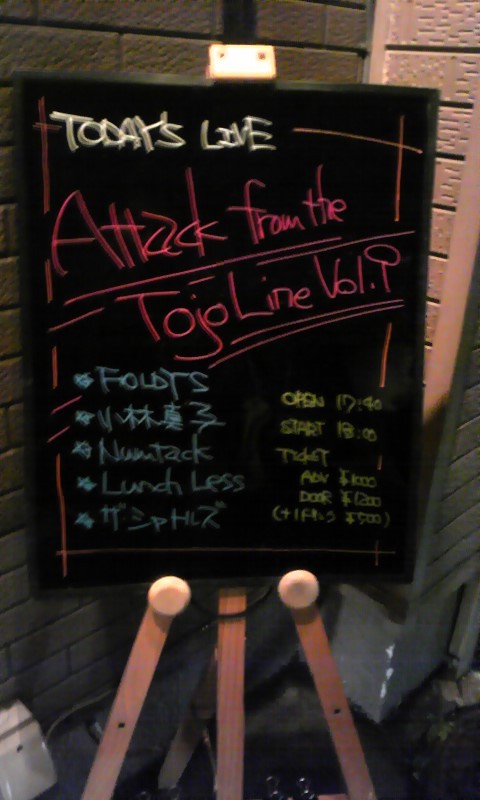 TODAY'S LIVE
Attack from the
Tojo Line Vol.1
★FOLDYS
★小林真子
★Numtack
★Lunch Less
★ザ・シャトルズ
OPEN 17:40
START 18:00
TICKET
ADV ¥1000
DOOR ¥1200
(+1ドリンク ¥500)